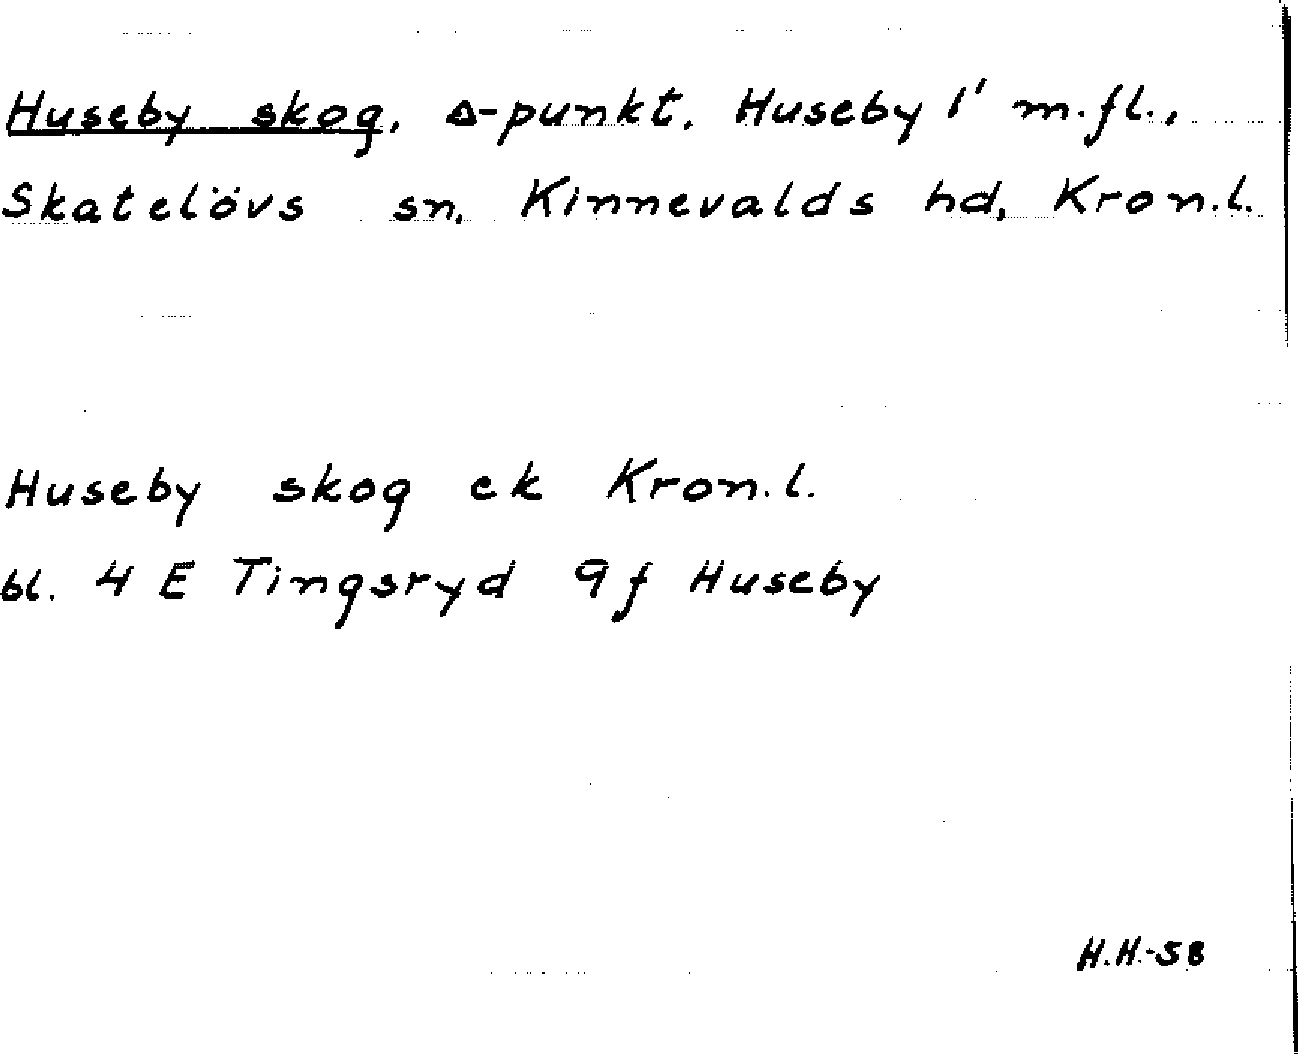 Huseby skog, Δ-punkt, Huseby 1' m.fl.,
Skatelövs sn, Kinnevalds hd, Kron.l.
Huseby skog ek Kron.l.
bl. 4 E Tingsryd 9f Huseby
H.H.-58